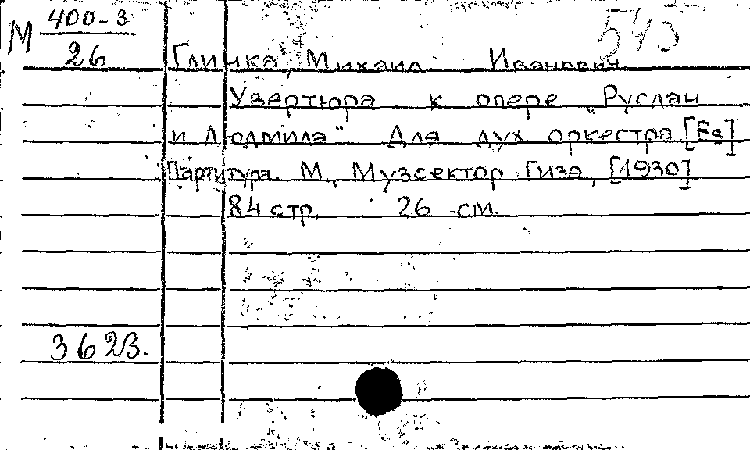 М 400-3
26
543
Глинка, Михаил Иванович
Увертюра к опере „Руслан
и Людмила" Для дух оркестра [Es]
Партитура. М., Музсектор Гиза, [1930]
84 стр. 26 см.